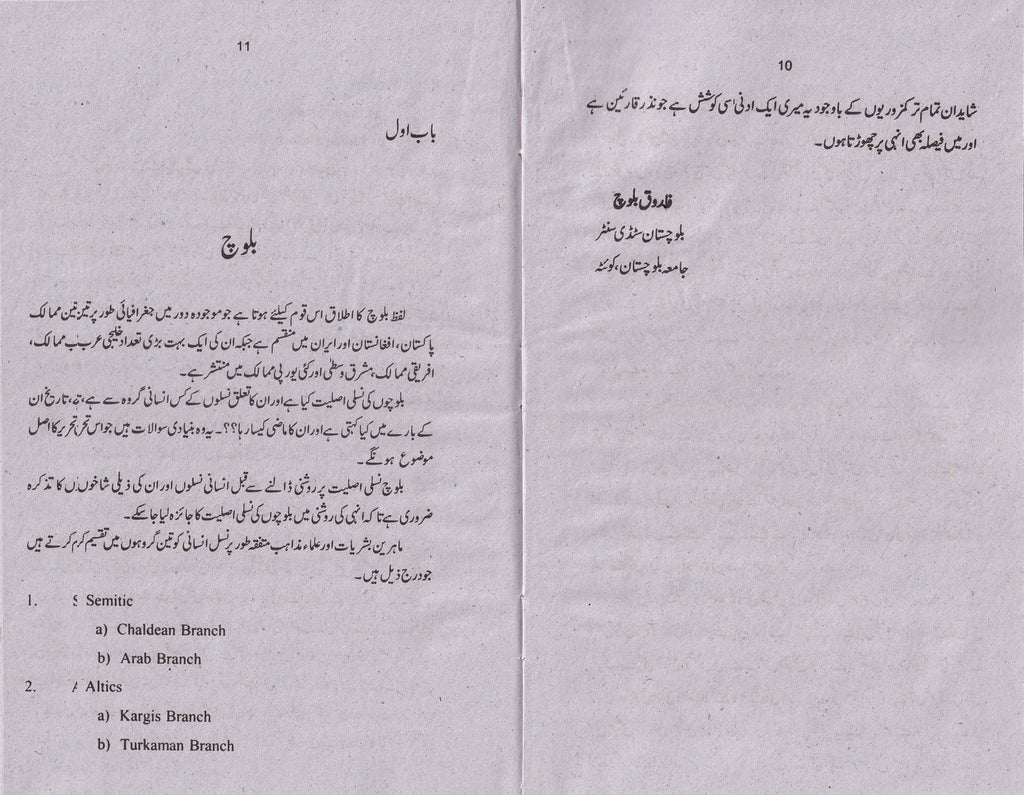 10
شاید ان تمام تر کمزوریوں کے باوجود یہ میری ایک ادنیٰ سی کوشش ہے جو نذر قارئین ہے
اور میں فیصلہ بھی انہی پر چھوڑتا ہوں۔
فاروق بلوچ
بلوچستان سٹڈی سنٹر
جامعہ بلوچستان، کوئٹہ
11
باب اول
بلوچ
لفظ بلوچ کا اطلاق اس قوم کیلئے ہوتا ہے جو موجودہ دور میں جغرافیائی طور پر تین ممالک
پاکستان، افغانستان اور ایران میں منقسم ہے جبکہ ان کی ایک بہت بڑی تعداد خلیجی عرب ممالک،
افریقی ممالک، مشرق وسطیٰ اور کئی یورپی ممالک میں منتشر ہے۔
بلوچوں کی نسلی اصلیت کیا ہے اور ان کا تعلق نسلوں کے کس انسانی گروہ سے ہے، تاریخ ان
کے بارے میں کیا کہتی ہے اور ان کا ماضی کیسا رہا؟؟۔ یہ وہ بنیادی سوالات ہیں جو اس تحریر کا اصل
موضوع ہونگے۔
بلوچ نسلی اصلیت پر روشنی ڈالنے سے قبل انسانی نسلوں اور ان کی ذیلی شاخوں کا تذکرہ
ضروری ہے تاکہ انہی کی روشنی میں بلوچوں کی نسلی اصلیت کا جائزہ لیا جا سکے۔
ماہرین بشریات اور علماء مذاہب متفقہ طور پر نسل انسانی کو تین گروہوں میں تقسیم کرتے ہیں
جو درج ذیل ہیں۔
1. Semitic
a) Chaldean Branch
b) Arab Branch
2. Altics
a) Kargis Branch
b) Turkaman Branch